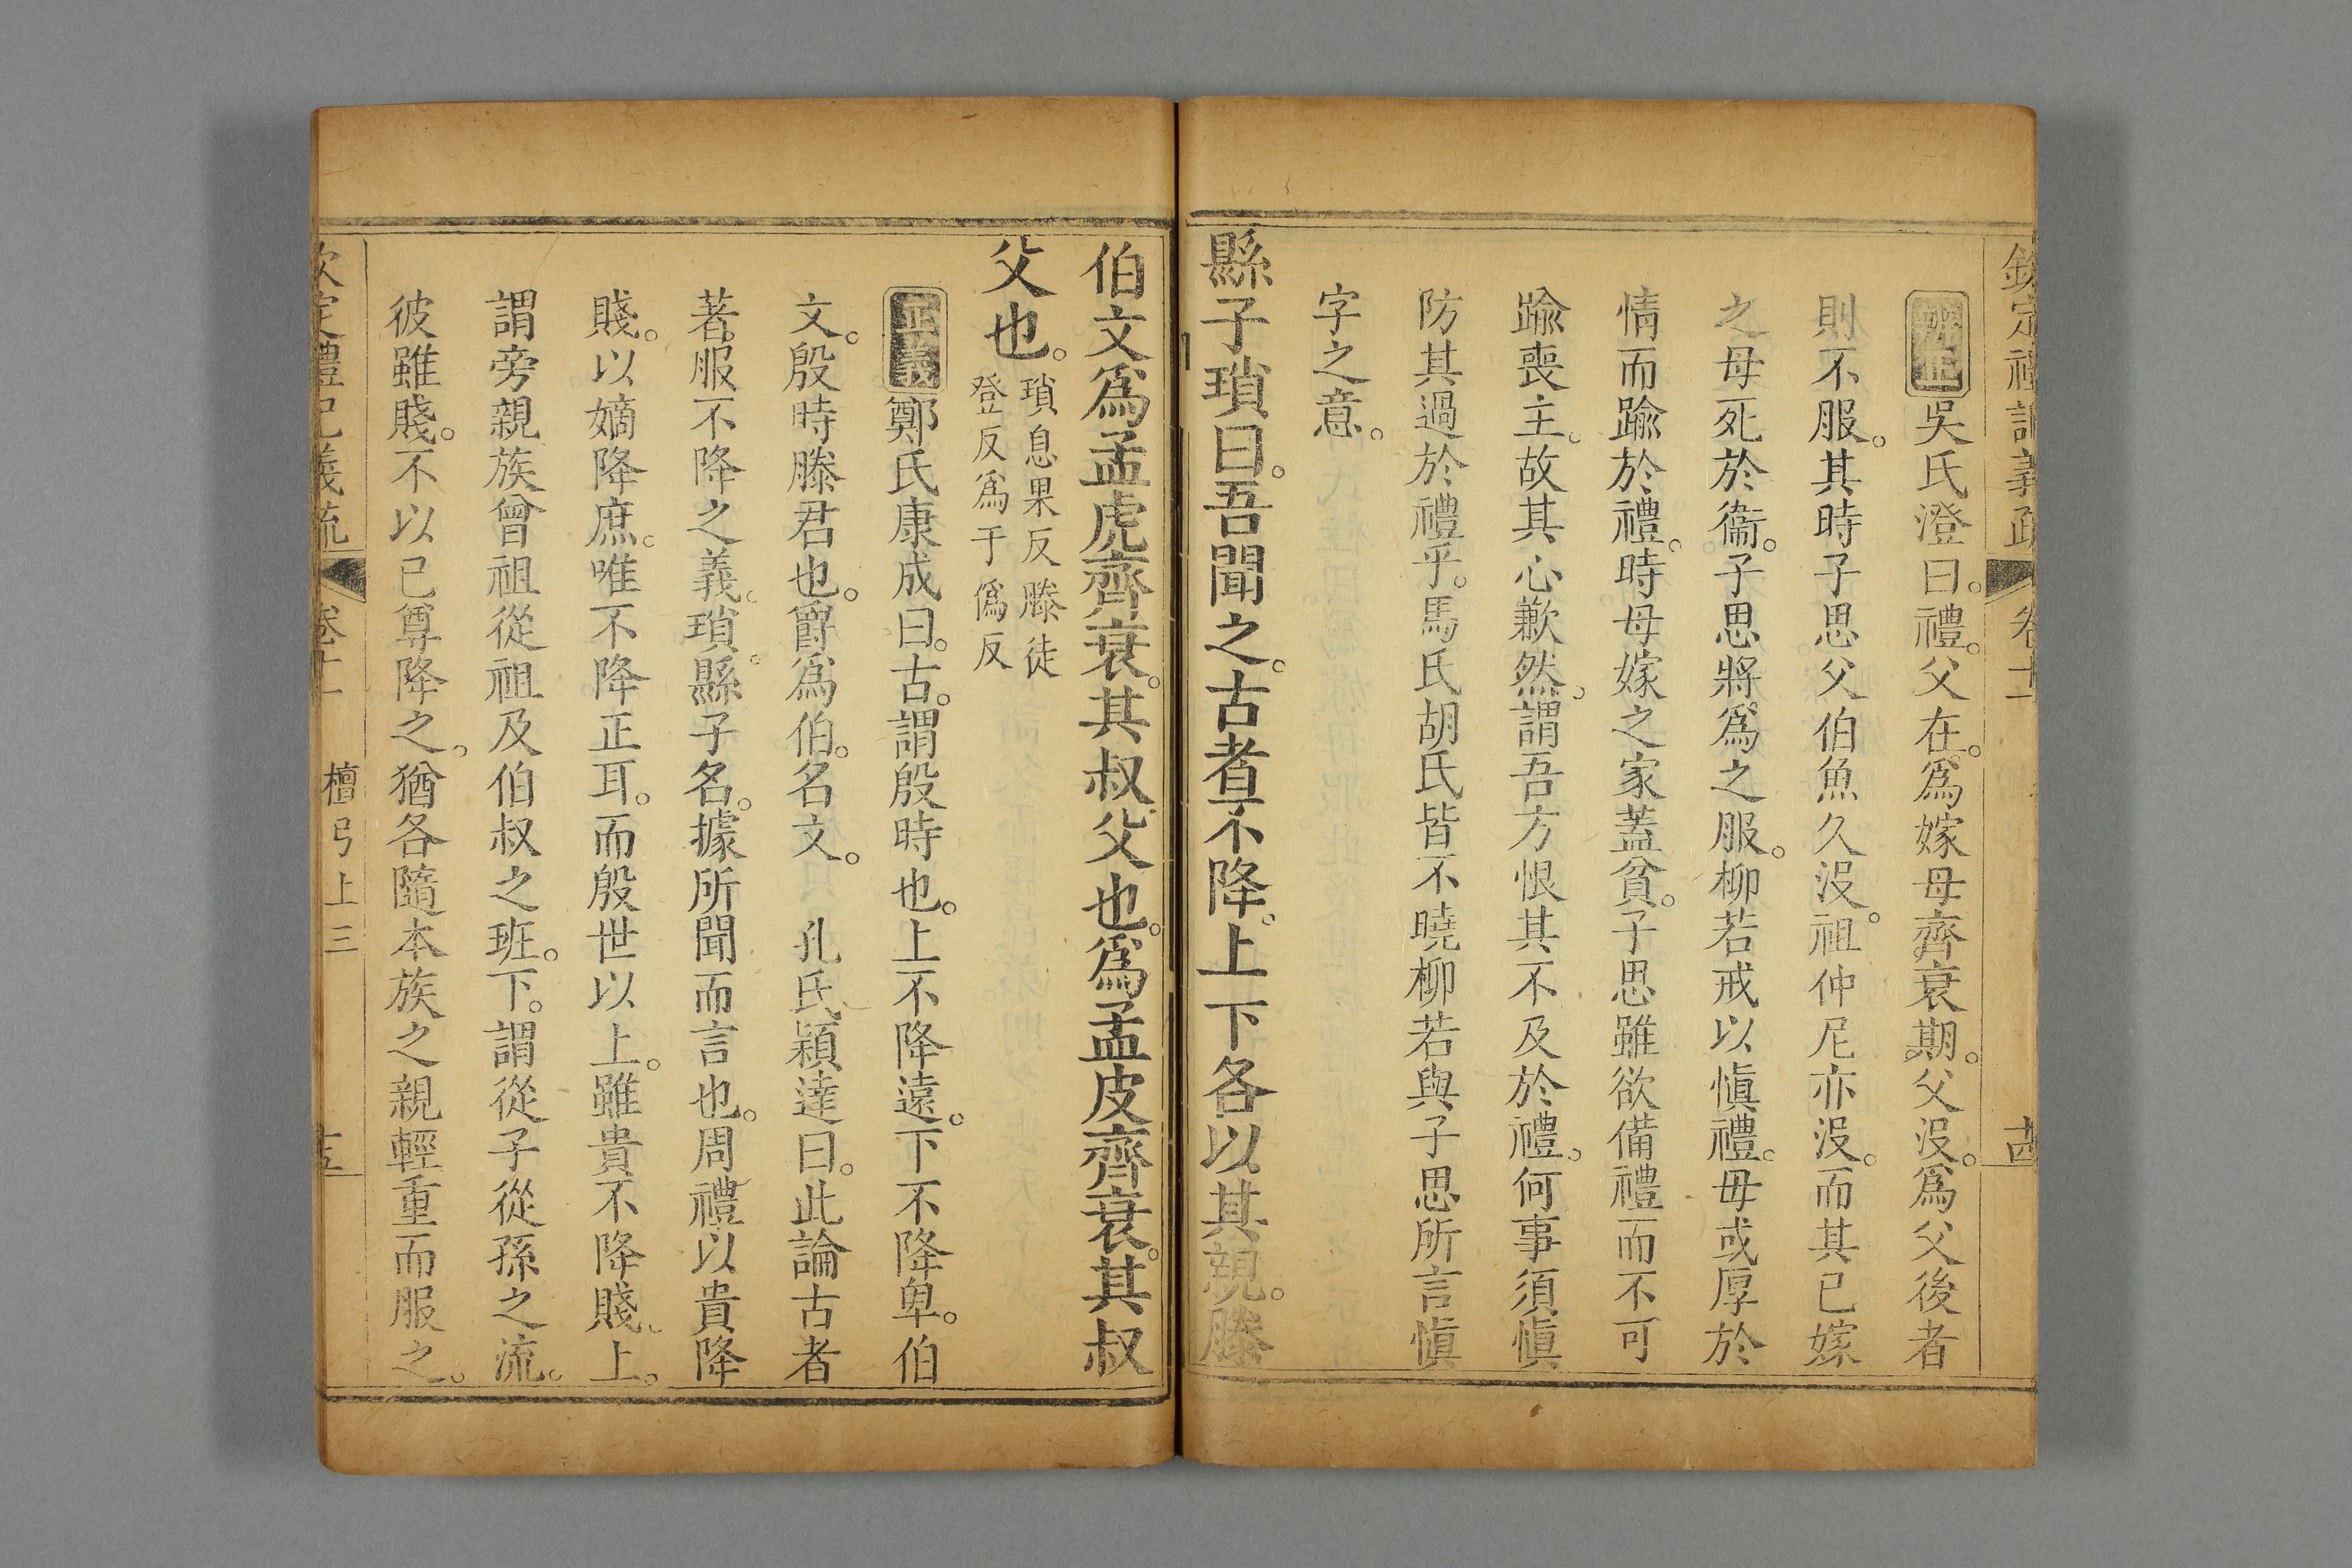 欽定禮記義疏 卷十一 十四
辨正吳氏澄曰。禮。父在。爲嫁母齊衰期。父沒。爲父後者
則不服。其時子思父伯魚久沒。祖仲尼亦沒。而其已嫁
之母死於衞。子思將爲之服。柳若戒以愼禮。毋或厚於
情而踰於禮。時母嫁之家蓋貧。子思雖欲備禮而不可
踰喪主。故其心歉然。謂吾方恨其不及於禮。何事須愼
防其過於禮乎。馬氏胡氏皆不曉柳若與子思所言愼
字之意。
縣子瑣曰。吾聞之。古者不降。上下各以其親。滕
伯文爲孟虎齊衰。其叔父也。爲孟皮齊衰。其叔
父也。瑣息果反滕徒
登反爲于僞反
正義鄭氏康成曰。古。謂殷時也。上不降遠。下不降卑。伯
文。殷時滕君也。爵爲伯。名文。 孔氏穎達曰。此論古者
著服不降之義。瑣。縣子名。據所聞而言也。周禮以貴降
賤。以嫡降庶。唯不降正耳。而殷世以上。雖貴不降賤。上。
謂旁親族曾祖從祖及伯叔之班。下。謂從子從孫之流。
彼雖賤。不以己尊降之。猶各隨本族之親輕重而服之。
欽定禮記義疏 卷十一 檀弓上三 十五